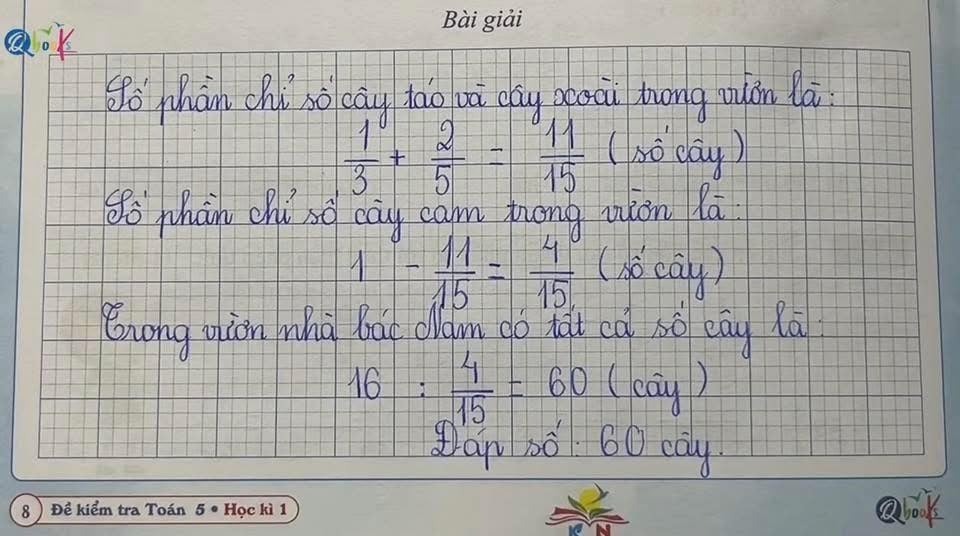 Bài giải
Qbooks
Số phần chỉ số cây táo và cây xoài trong vườn là:
1/3 + 2/5 = 11/15 (số cây)
Số phần chỉ số cây cam trong vườn là:
1 - 11/15 = 4/15 (số cây)
Trong vườn nhà bác Nam có tất cả số cây là:
16 : 4/15 = 60 (cây)
Đáp số: 60 cây.
8 Đề kiểm tra Toán 5 • Học kì 1
K N
Qbooks